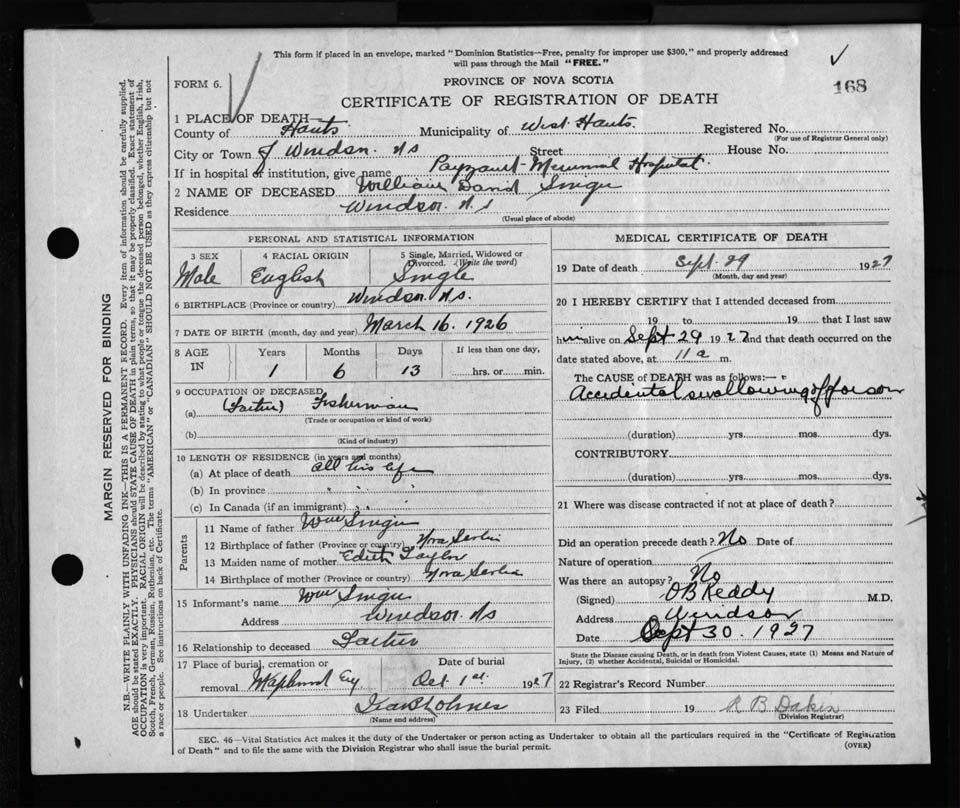 This form if placed in an envelope, marked "Dominion Statistics—Free, penalty for improper use $300," and properly addressed
will pass through the Mail "FREE."
FORM 6.
PROVINCE OF NOVA SCOTIA
168
CERTIFICATE OF REGISTRATION OF DEATH
1 PLACE OF DEATH—
County of Hants Municipality of West Hants Registered No.
(For use of Registrar General only)
City or Town of Windsor. N S Street House No.
If in hospital or institution, give name Payzant Memorial Hospital.
2 NAME OF DECEASED William David
Residence Windsor. N. S
(Usual place of abode)
PERSONAL AND STATISTICAL INFORMATION
3 SEX 4 RACIAL ORIGIN 5 Single, Married, Widowed or Divorced. (Write the word)
Male English Single
6 BIRTHPLACE (Province or country) Windsor N.S.
7 DATE OF BIRTH (month, day and year) March 16. 1926
8 AGE IN Years Months Days If less than one day,
1 6 13 hrs. or min.
9 OCCUPATION OF DECEASED
(a) (Father) Fisherman
(Trade or occupation or kind of work)
(b)
(Kind of industry)
10 LENGTH OF RESIDENCE (in years and months)
(a) At place of death all his life
(b) In province " " "
(c) In Canada (if an immigrant)
Parents
11 Name of father Wm
12 Birthplace of father (Province or country) Nova Scotia
13 Maiden name of mother Edith Taylor
14 Birthplace of mother (Province or country) Nova Scotia
15 Informant's name Wm
Address Windsor. N S
16 Relationship to deceased Father
17 Place of burial, cremation or Date of burial
removal Oct 1st. 1927
18 Undertaker Holmes
(Name and address)
MEDICAL CERTIFICATE OF DEATH
19 Date of death Sept. 29 1927
(Month, day and year)
20 I HEREBY CERTIFY that I attended deceased from
19 to 19 that I last saw
him alive on Sept 29 1927 and that death occurred on the
date stated above, at 11 a m.
The CAUSE OF DEATH was as follows:—
Accidental swallowing of poison
(duration) yrs. mos. dys.
CONTRIBUTORY
(duration) yrs. mos. dys.
21 Where was disease contracted if not at place of death?
Did an operation precede death? No Date of
Nature of operation
Was there an autopsy? No
(Signed) O B Keddy M.D.
Address Windsor
Date Sept 30. 1927
State the Disease causing Death, or in death from Violent Causes, state (1) Means and Nature of
Injury, (2) whether Accidental, Suicidal or Homicidal.
22 Registrar's Record Number
23 Filed 19 R B Dakin
(Division Registrar)
SEC. 46—Vital Statistics Act makes it the duty of the Undertaker or person acting as Undertaker to obtain all the particulars required in the "Certificate of Registration
of Death" and to file the same with the Division Registrar who shall issue the burial permit.
(OVER)
MARGIN RESERVED FOR BINDING
N.B.—WRITE PLAINLY WITH UNFADING INK—THIS IS A PERMANENT RECORD. Every item of information should be carefully supplied.
AGE should be stated EXACTLY. PHYSICIANS should STATE CAUSE OF DEATH in plain terms, so that it may be properly classified. Exact statement of
OCCUPATION is very important. RACIAL ORIGIN will be described by stating to what people or tongue the deceased person belonged, whether English, Irish,
Scotch, French, German, Russian, Ruthenian, etc. The terms "AMERICAN" or "CANADIAN" SHOULD NOT BE USED as they express citizenship but not
a race or people. See instructions on back of Certificate.